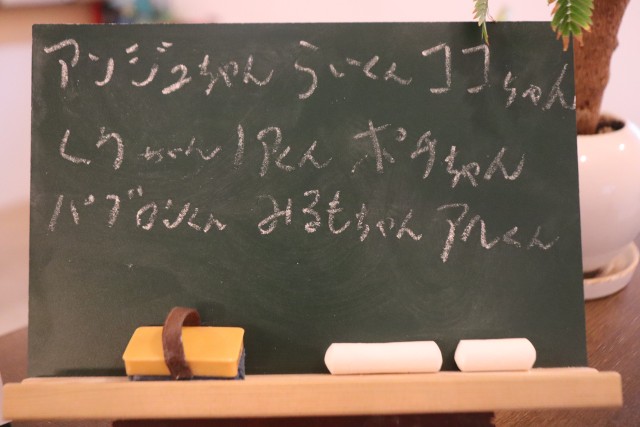 アンジュちゃん らいくん ココちゃん
くうちゃん ポチちゃん
バブロンくん みるもちゃん アルくん